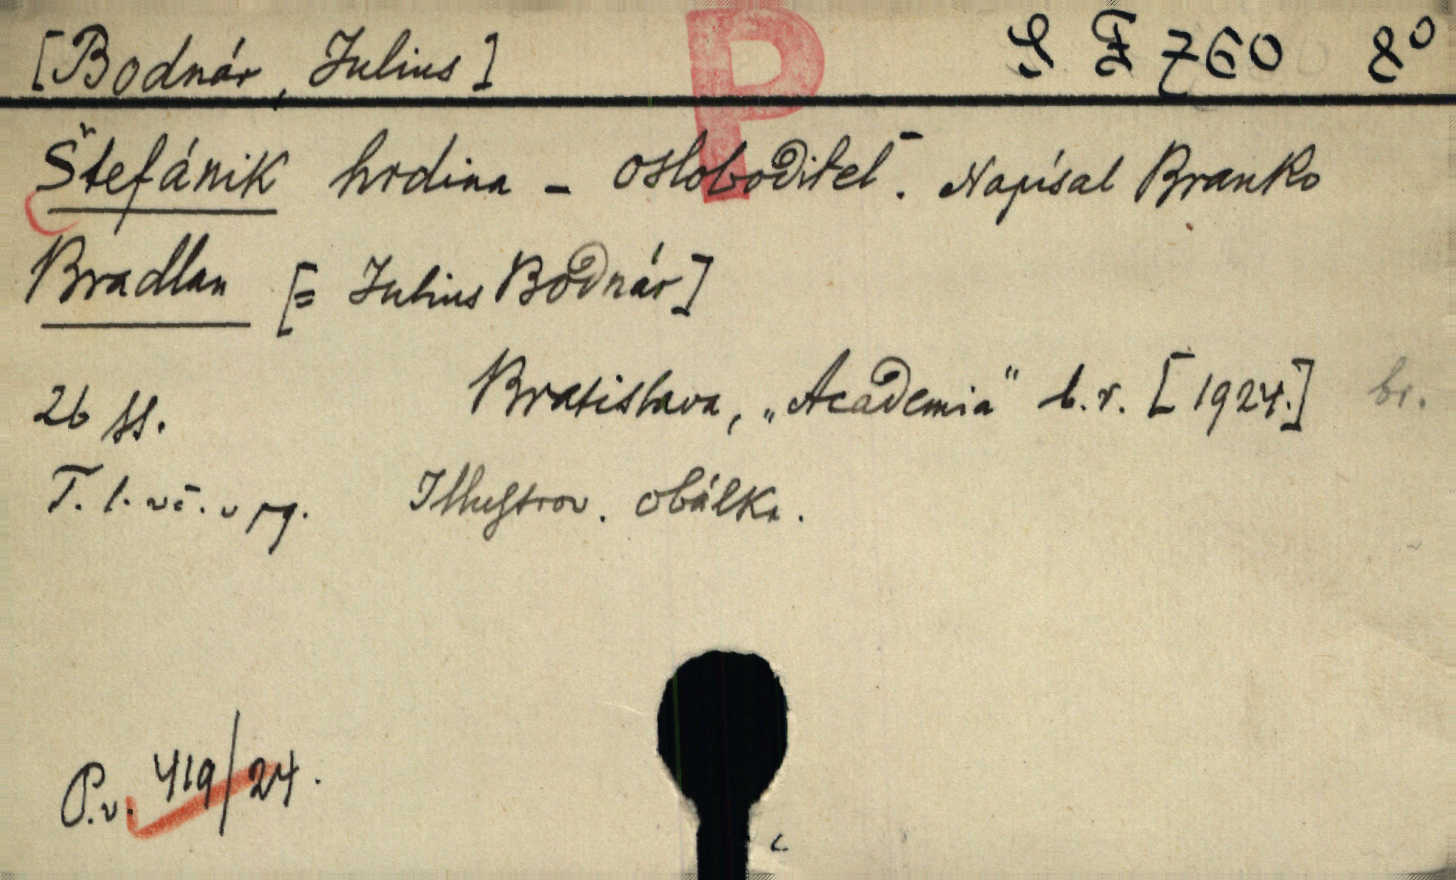 [Bodnár, Julius] P S F 760 8°
Štefánik hrdina - osloboditeľ. Napísal Branko
Bradlan [= Julius Bodnár]
26 ss. Bratislava, „Academia" b.r. [1924.] br.
T. l. vč. v pg. Illustrov. obálka.
P.v. 419/24.